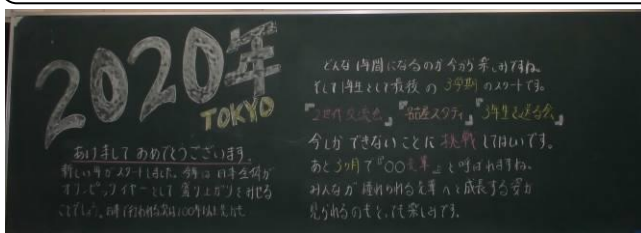 2020年
TOKYO
あけまして おめでとうございます。
新しい年がスタートしました。今年は日本全体が
オリンピックイヤーとして盛り上がりをみせる
ことでしょう。
どんな1年間になるのか今から楽しみですね。
そして1年生として最後の3学期のスタートです。
『2世代交流会』『名古屋スタディ』『3年生を送る会』
今しかできないことに挑戦してほしいです。
あと3ヶ月で『〇〇先輩』と呼ばれますね。
みんなが憧れられる先輩へと成長する姿が
見られるのもとても楽しみです。